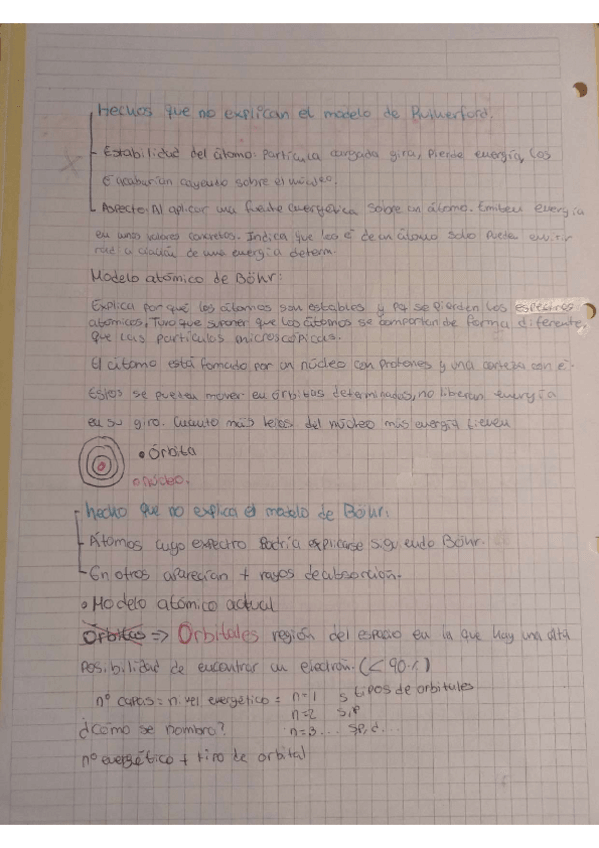 Hechos que no explican el modelo de Rutherford.
- Estabilidad del átomo: Partícula cargada gira, Pierde energía, los
e⁻ acabarían cayendo sobre el núcleo.
- Aspecto: Al aplicar una fuente energética sobre un átomo. Emiten energía
en unos valores concretos. Indica que los e⁻ de un átomo solo puede emitir
radiación de una energía determ.
Modelo atómico de Böhr:
Explica por qué los átomos son estables y se pierden los espectros
atómicos, Tuvo que suponer que los átomos se comportan de forma diferente,
que las partículas microscópicas.
El átomo está formado por un núcleo con protones y una corteza con e⁻.
Estos se pueden mover en órbitas determinadas, no liberan energía
en su giro. Cuanto más lejos del núcleo más energía tienen
• Órbita
• núcleo.
- hecho que no explica el modelo de Böhr:
- Átomos cuyo espectro Podría explicarse siguiendo Böhr.
- En otros aparecían + rayos de absorción.
• Modelo atómico actual
Órbitas => Orbitales región del espacio en la que hay una alta
Posibilidad de encontrar un electrón. (< 90%)
nº capas = nivel energético = n=1 s tipos de orbitales
n=2 s,p
¿Cómo se nombra? n=3... s,p,d...
nº energético + tipo de orbital